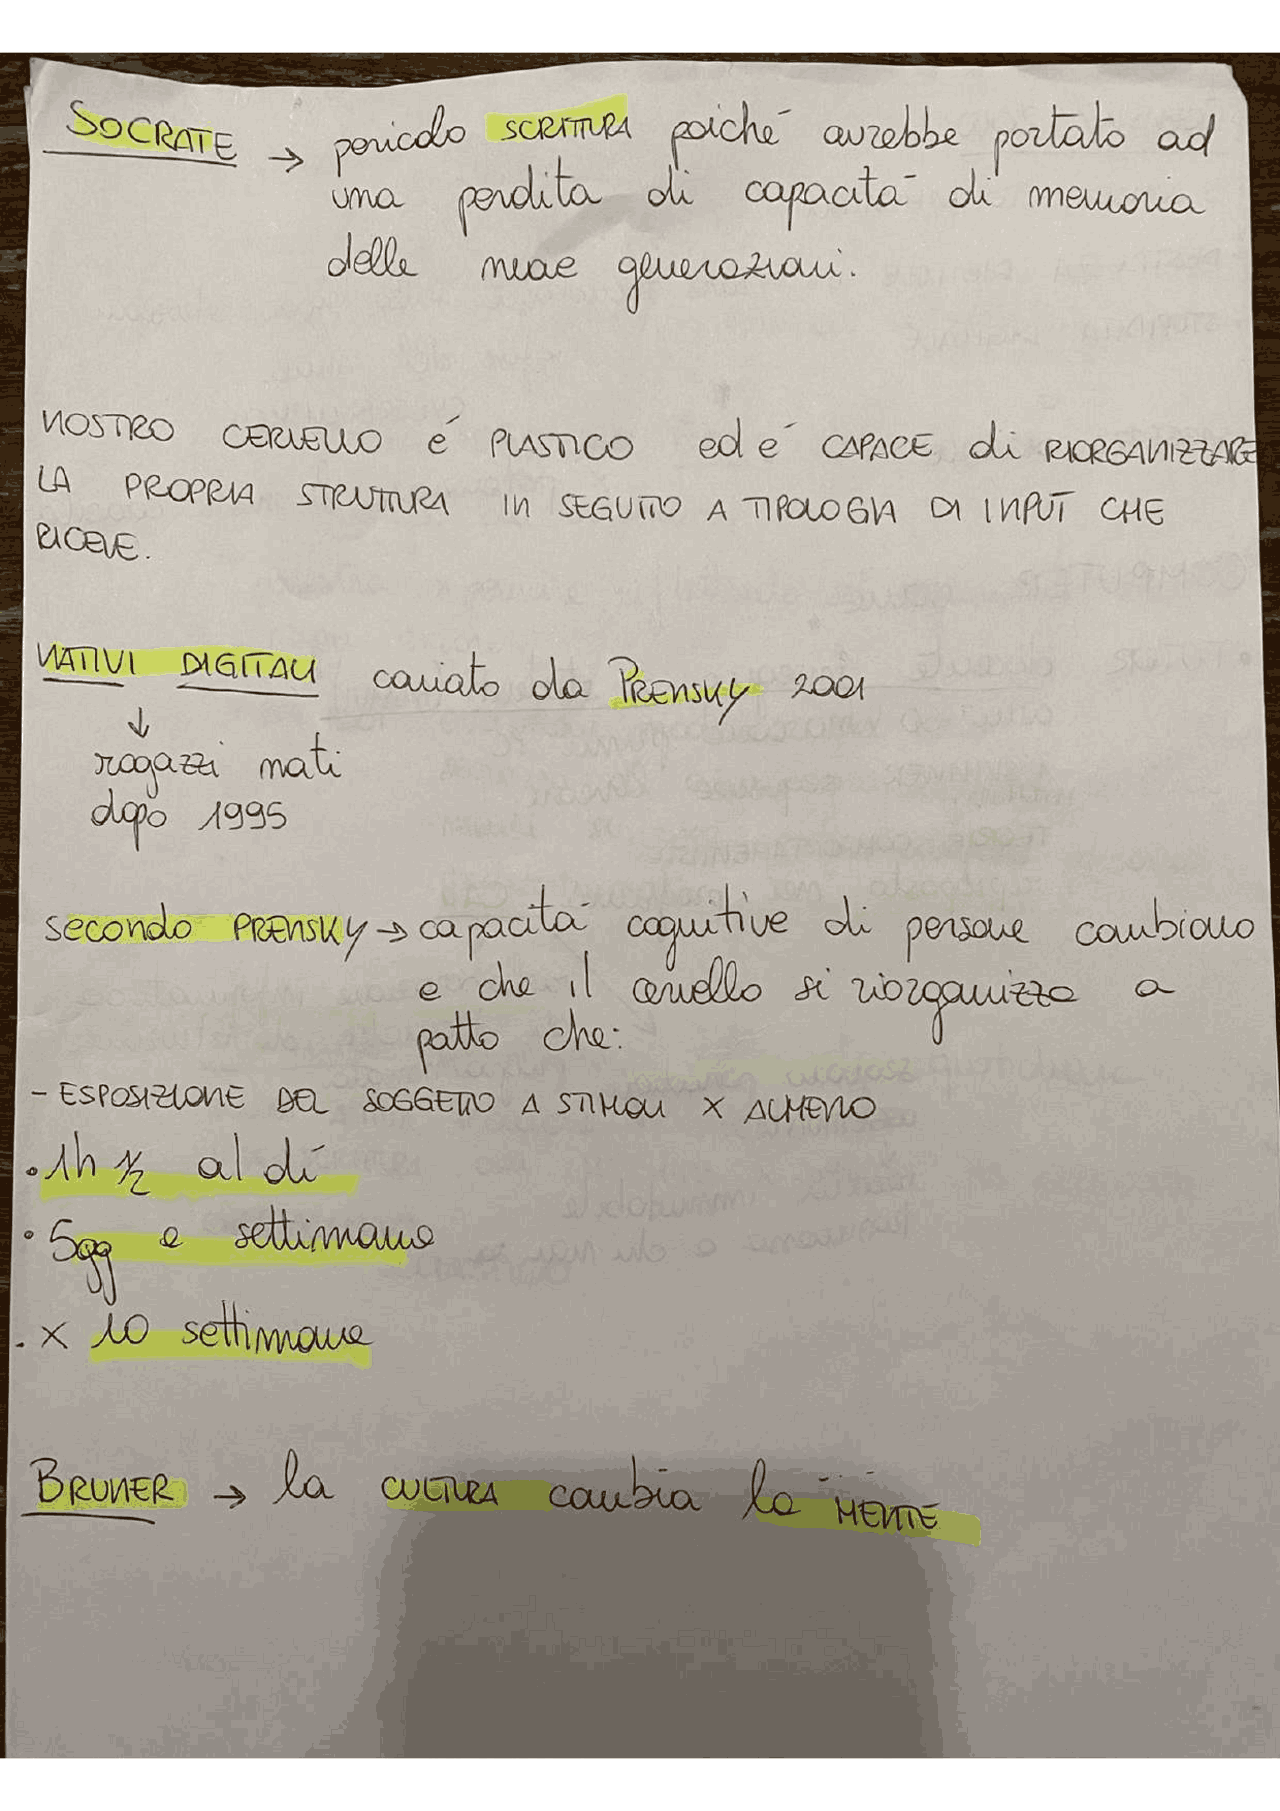 SOCRATE → pericolo SCRITTURA poiché avrebbe portato ad
una perdita di capacità di memoria
delle nuove generazioni.
NOSTRO CERVELLO é PLASTICO ed é CAPACE di RIORGANIZZARE
LA PROPRIA STRUTTURA IN SEGUITO A TIPOLOGIA DI INPUT CHE
RICEVE.
NATIVI DIGITALI coniato da PRENSKY 2001
↓
ragazzi nati
dopo 1995
secondo PRENSKY → capacità cognitive di persone cambiano
e che il cervello si riorganizza a
patto che:
- ESPOSIZIONE DEL SOGGETTO A STIMOLI X ALMENO
• 1h ½ al dí
• 5gg a settimana
. x 10 settimane
BRUNER → la CULTURA cambia la MENTE